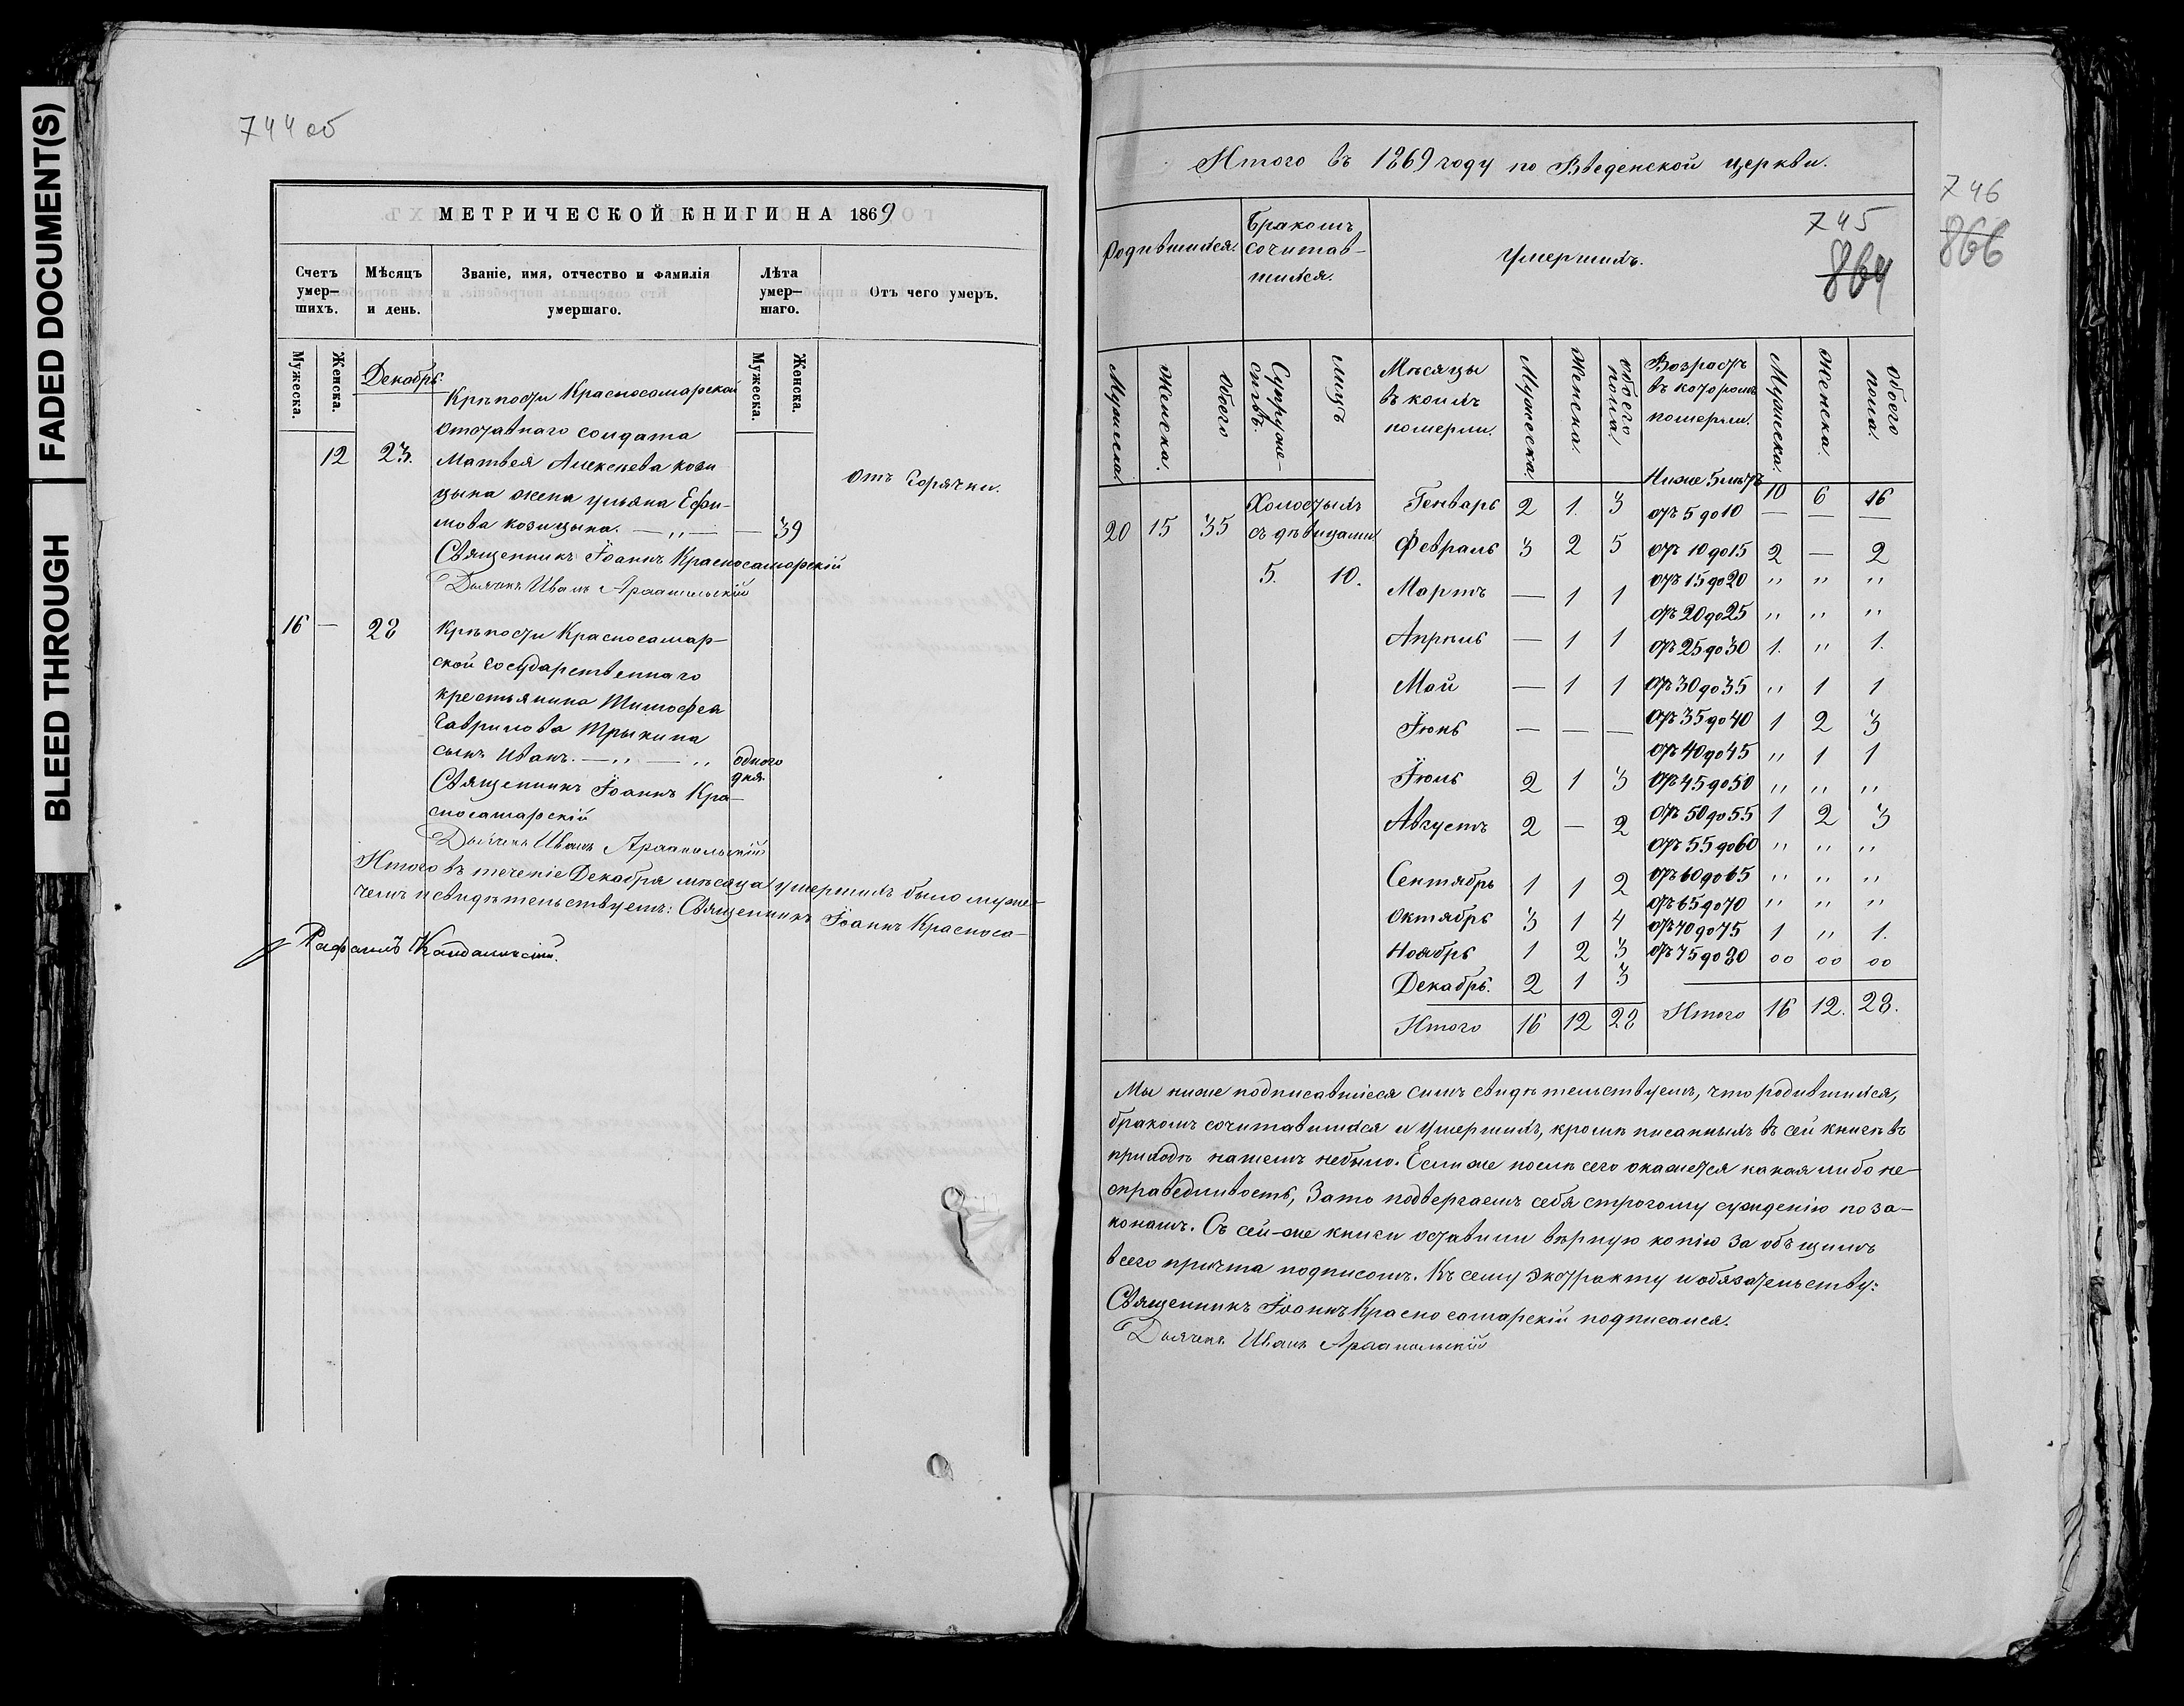 FADED DOCUMENT(S)
BLEED THROUGH
744об
МЕТРИЧЕСКОЙ КНИГИ НА 1869
Счетъ умер-шихъ.
Мѣсяцъ и день.
Званіе, имя, отчество и фамилія умершаго.
Лѣта умер-шаго.
Отъ чего умеръ.
Мужеска.
Женска.
Мужеска.
Женска.
Декабрь.
Крѣпости Красносамарской
отставнаго солдата
12 23. Матвея Алексѣева кози
цына жена ульяна Ефи-
мова козицына. — „ — — 39
отъ Горячки.
Священникъ Іоаннъ Красносамарскій
Дьячекъ Иванъ
16 — 28 Крѣпости Красносамар-
ской государственнаго
крестьянина Тимофея
Гаврилова Трыкина
сынъ Иванъ. — „ — „ одного
дня
Священникъ Іоаннъ Кра-
сносамарскій
Дьячекъ Иванъ
Итого въ теченіе Декабря мѣсяца умершихъ было муже-
чемъ и свидѣтельствуемъ: Священникъ Іоаннъ Красноса-
Рафаилъ
Итого въ 1869 году по Введенской церкви.
745
864
746
866
Родившихся.
Бракомъ
сочитав-
шихся.
Умершихъ.
Мужеска
Женска.
Обоего
Супруже-
ствъ.
лицъ
Мѣсяцы
въ коихъ
померли.
Мужеска.
Женска.
обоего
пола.
Возрастъ
въ которомъ
померли.
Мужеска.
Женска.
Обоего
пола.
20 15 35
Холостыхъ
съ дѣвицами
5. 10.
Генварь 2 1. 3
Февраль 3 2 5
Мартъ — 1 1
Апрѣль — 1 1
Май — 1 1
Іюнь — — —
Іюль 2 1 3
Августъ 2 — 2
Сентябрь 1 1 2
Октябрь 3 1 4
Ноябрь 1 2 3
Декабрь. 2 1 3
Итого 16 12 28
Ниже 5 лѣтъ 10 6 16
отъ 5 до 10 — — —
отъ 10 до 15 2 — 2
отъ 15 до 20 „ „ „
отъ 20 до 25 „ „ „
отъ 25 до 30 1. „ 1.
отъ 30 до 35 „ 1 1
отъ 35 до 40 1 2 3
отъ 40 до 45 „ 1 1
отъ 45 до 50 „ „ „
отъ 50 до 55 1 2 3
отъ 55 до 60 „ „ „
отъ 60 до 65 „ „ „
отъ 65 до 70 „ „ „
отъ 70 до 75 1 „ 1.
отъ 75 до 80 oo oo oo
Итого 16 12. 28.
Мы ниже подписавшіеся симъ свидѣтельствуемъ, что родившихся,
бракомъ сочитавшихся и умершихъ, кромѣ писанныхъ въ сей книгѣ въ
приходѣ нашемъ небыло. Если же послѣ сего окажется какая либо не-
справедливость, Зато подвергаемъ себя строгому сужденію по за-
конамъ. Съ сей-же книги оставили вѣрную копію за общимъ
всего причта подписомъ. Къ сему экстракту и обязательству:
Священникъ Іоаннъ Красносамарскій подписался.
Дьячекъ Иванъ